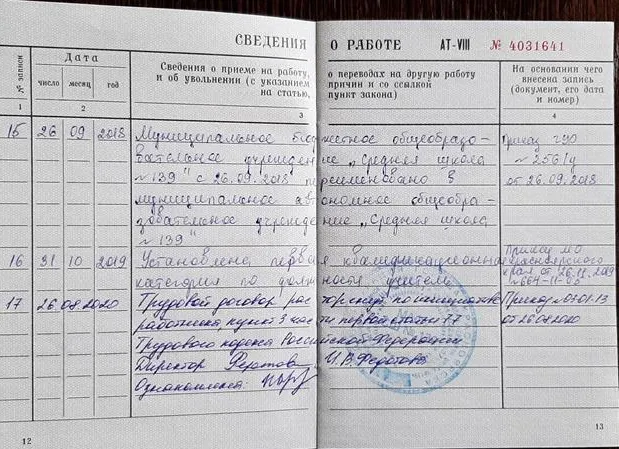 СВЕДЕНИЯ О РАБОТЕ АТ-VIII № 4031641
№ записи
Дата
число месяц год
Сведения о приеме на работу,
и об увольнении (с указанием
на статью,
о переводах на другую работу
причин и со ссылкой
пункт закона)
На основании чего
внесена запись
(документ, его дата
и номер)
1 2 3 4
15 26 09 2018 Муниципальное бюджетное общеобразо- Приказ ГУО
вательное учреждение „Средняя школа № 256/д
№139" с 26.09.2018 переименовано в от 26.09.2018
муниципальное автономное общеобра-
зовательное учреждение „Средняя школа
№139"
16 31 10 2019 Установлена первая квалификационная Приказ МО Красноярского
категория по должности учитель края от
17 26.08.2020 Трудовой договор расторгнут по инициативе Приказ
работника, пункт 3 части первой статьи 77 от 26.08.2020
Трудового кодекса Российской Федерации
Директор И.В. Федотова
Ознакомлена:
12 13